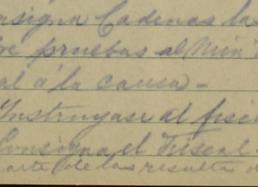 nsigna Cadenas la
pruebas al Min
al á la causa -
Instruyase al fisc
Consigna el Fiscal
arte de las resultas d